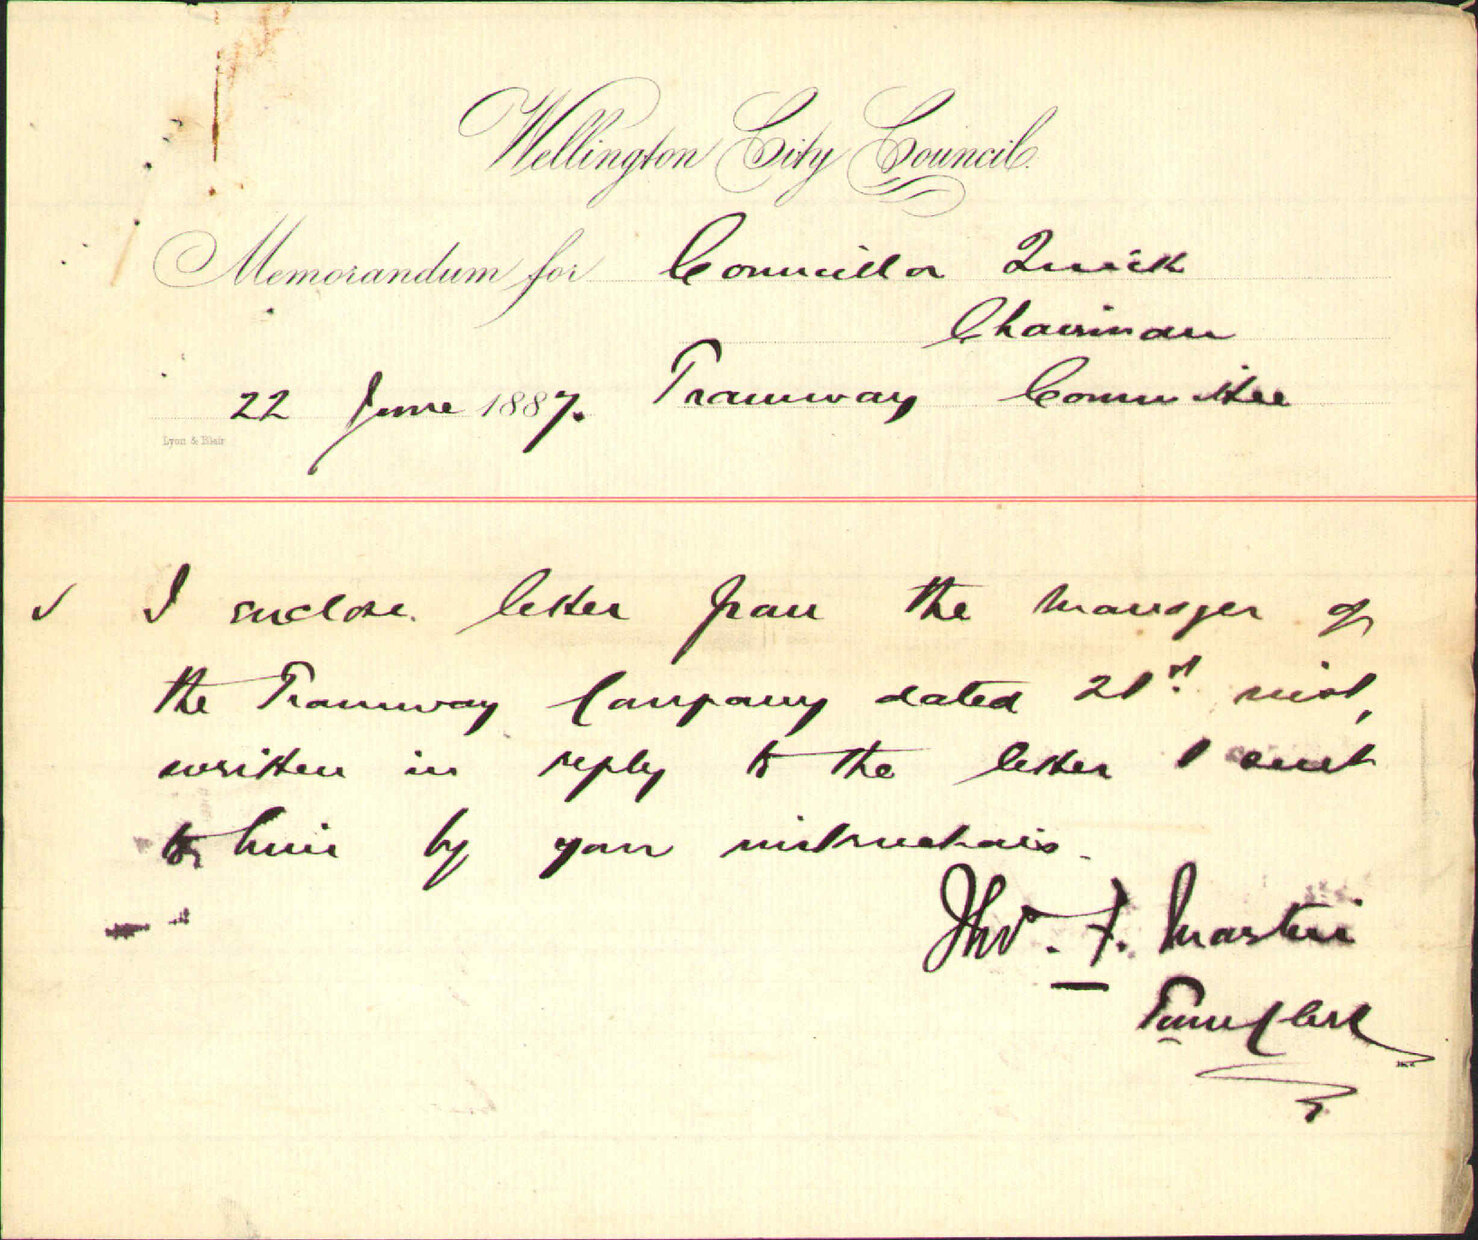 Wellington City Council.
Memorandum for Councillor Quick
Chairman
22 June 1887. Tramway Committee
Lyon & Blair
I enclose letter from the Manager of
the Tramway Company dated 21st inst,
written in reply to the letter I sent
to him by your instructions.
Thos. F. Martin
Town Clerk